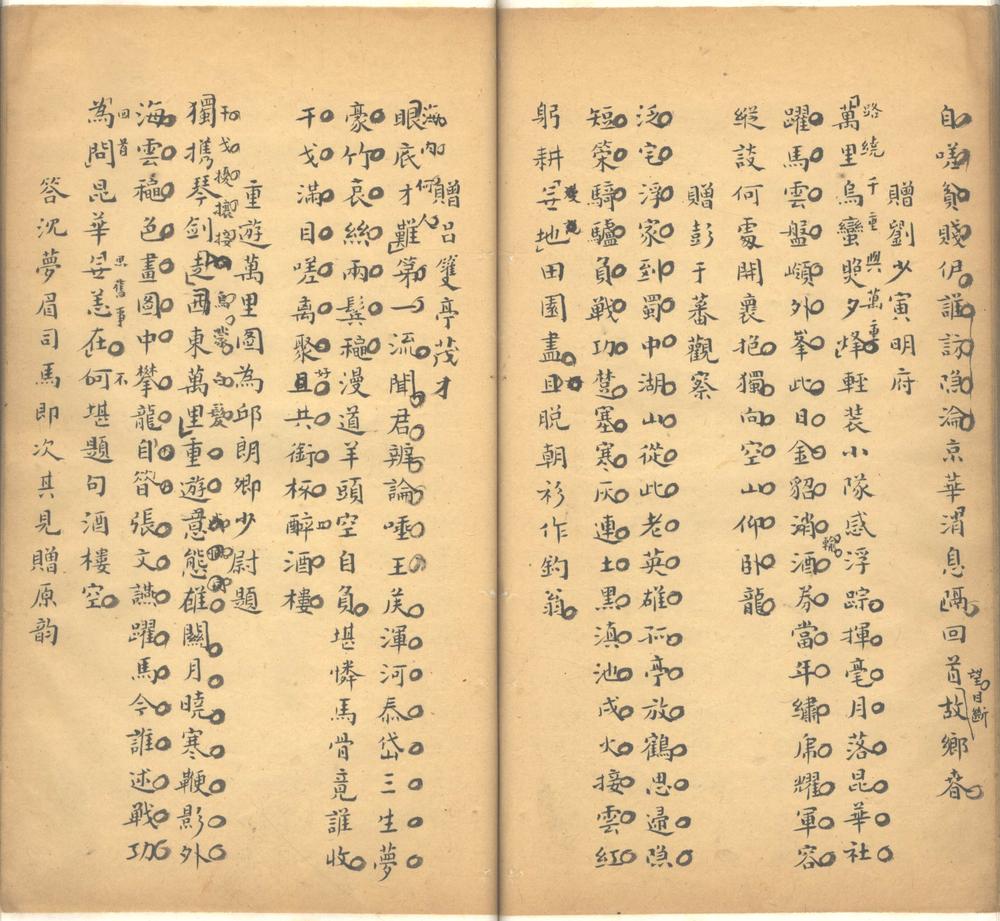 自嗟貧賤伊誰訪隱淪京華消息隔回首故鄉春
望目斷
贈劉少寅明府
路繞千重與萬重
萬里烏蠻煚夕烽輕装小隊感浮踪揮毫月落昆華社
躍馬雲盤嶺外峯此日金貂消酒券當年繡帍耀軍容
縱談何處開襄抱獨向空山仰卧龍
贈彭于蕃觀察
泛宅浮家到蜀中湖山從此老英雄孤亭放鶴思歸隐
短策騎驢負戰功楚塞寒灰連土黒滇池戍火接雲紅
躬耕無地田園盡且脱朝衫作釣翁
贈呂篗亭茂才
海内何人
眼底才難第一流聞君辨論唾王侯渾河泰岱三生夢
豪竹哀絲兩鬂穐漫道羊頭空自負堪憐馬骨竟誰收
干戈滿目嗟离聚且共銜杯醉酒樓
好
重遊萬里圖為邱朗卿少尉題
干戈擾攘
獨攜琴劍走西東萬里重遊意態雄關月曉寒鞭影外
海雲穐色畫圖中攀龍自昝張文讌躍馬今誰述戰功
回首 思舊事 不
為問昆華無恙在何堪題句酒樓空
答沈夢眉司馬即次其見贈原韵